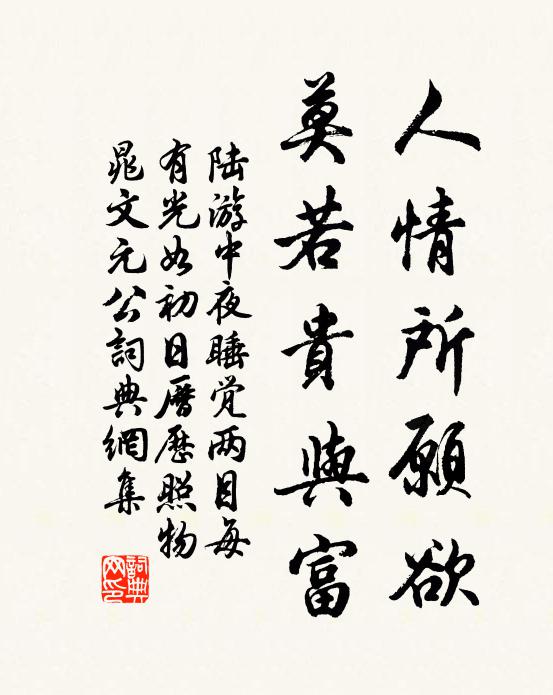 人情所願欲
莫若貴與富
陆游中夜睡觉两目每
有光如初日曆歷照物
晁文元公詞典網集
詞典网印